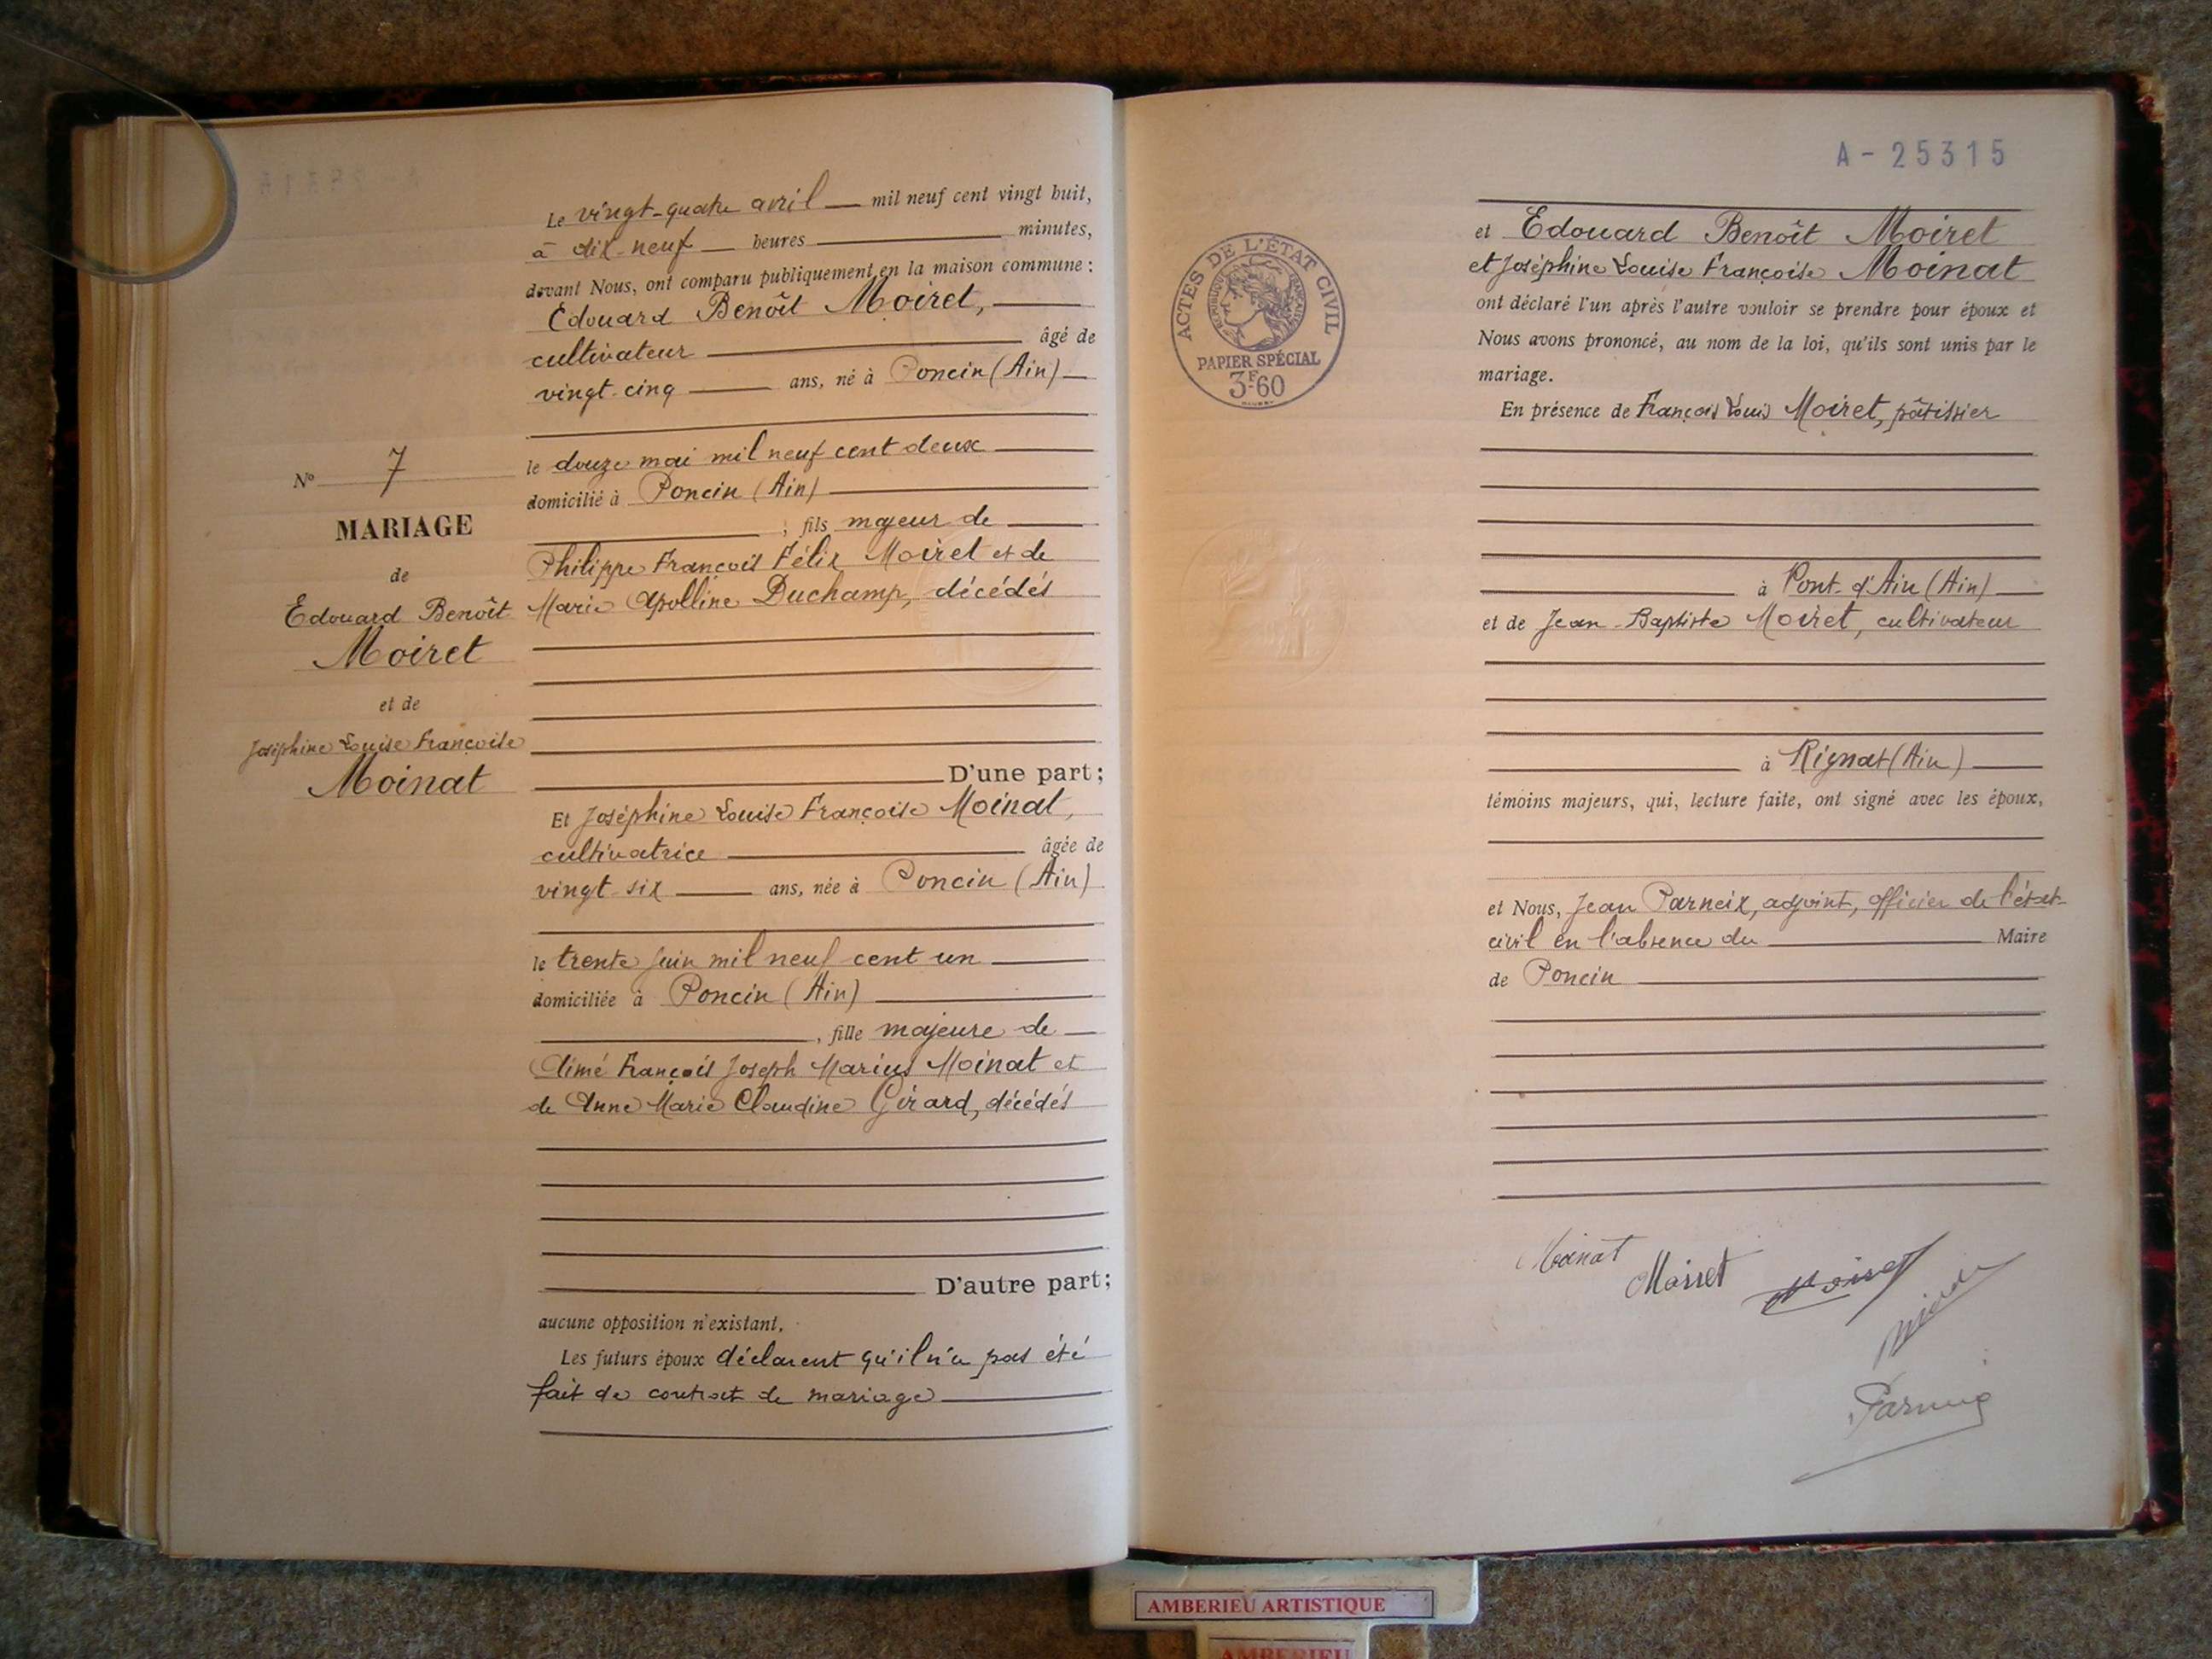 Le vingt-quatre avril mil neuf cent vingt huit,
à dix-neuf heures minutes,
devant Nous, ont comparu publiquement en la maison commune :
Edouard Benoît Moiret,
cultivateur âgé de
vingt-cinq ans, né à Poncin (Ain)
le douze mai mil neuf cent deux
domicilié à Poncin (Ain)
; fils majeur de
Philippe François Félix Moiret et de
Marie Apolline Duchamp, décédés
D'une part;
Et Joséphine Louise Françoise Moinat,
cultivatrice âgée de
vingt-six ans, née à Poncin (Ain)
le trente juin mil neuf cent un
domiciliée à Poncin (Ain)
, fille majeure de
Aimé François Joseph Marius Moinat et
de Anne Marie Claudine Girard, décédés
D'autre part;
aucune opposition n'existant.
Les futurs époux déclarent qu'il n'a pas été
fait de contrat de mariage
No 7
MARIAGE
de
Edouard Benoît
Moiret
et de
Joséphine Louise Françoise
Moinat
A-25315
ACTES DE L'ÉTAT CIVIL
RÉPUBLIQUE FRANÇAISE
PAPIER SPÉCIAL
3F60
et Edouard Benoît Moiret
et Joséphine Louise Françoise Moinat
ont déclaré l'un après l'autre vouloir se prendre pour époux et
Nous avons prononcé, au nom de la loi, qu'ils sont unis par le
mariage.
En présence de François Louis Moiret, pâtissier
à Pont-d'Ain (Ain)
et de Jean-Baptiste Moiret, cultivateur
à Rignat (Ain)
témoins majeurs, qui, lecture faite, ont signé avec les époux,
et Nous, Jean Parneix, adjoint, officier de l'état-
civil en l'absence du Maire
de Poncin
Moinat
Moiret
Moiret
Parneix
AMBERIEU ARTISTIQUE
AMBERIEU